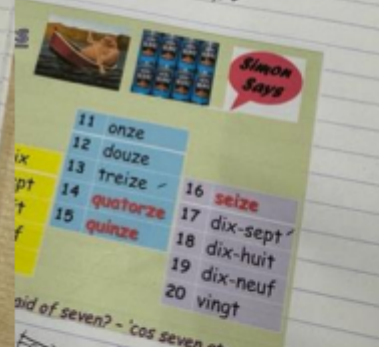 Simon
Says
11 onze
12 douze
13 treize
14 quatorze
15 quinze
16 seize
17 dix-sept
18 dix-huit
19 dix-neuf
20 vingt
ix
pt
t
f
aid of seven? - 'cos seven